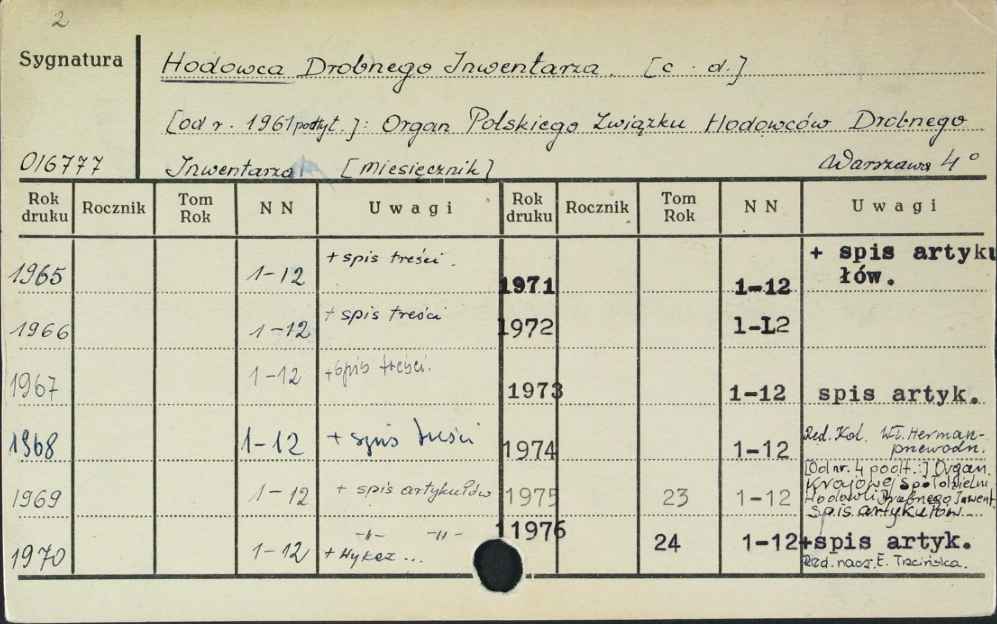 2
Sygnatura
Hodowca Drobnego Inwentarza. [c. d.]
[od r. 1961 podtyt.]: Organ Polskiego Związku Hodowców Drobnego
016777 Inwentarza [miesięcznik] Warszawa 4°
Rok druku Rocznik Tom Rok NN Uwagi Rok druku Rocznik Tom Rok NN Uwagi
1965 1-12 + spis treści. 1971 1-12 + spis artykułów.
1966 1-12 + spis treści 1972 1-L2
1967 1-12 + spis treści. 1973 1-12 spis artyk.
1968 1-12 + spis treści 1974 1-12 Red. Kol. Wł. Herman-
1969 1-12 + spis artykułów 1975 23 1-12 [Od nr. 4 podt.:] Organ
Krajowej Spółdzielni
Hodowli Drobnego Inwent.
spis artykułów
1970 1-12 -"- -"- 11976 24 1-12 +spis artyk.
Red. nacz. E. Trzcińska.